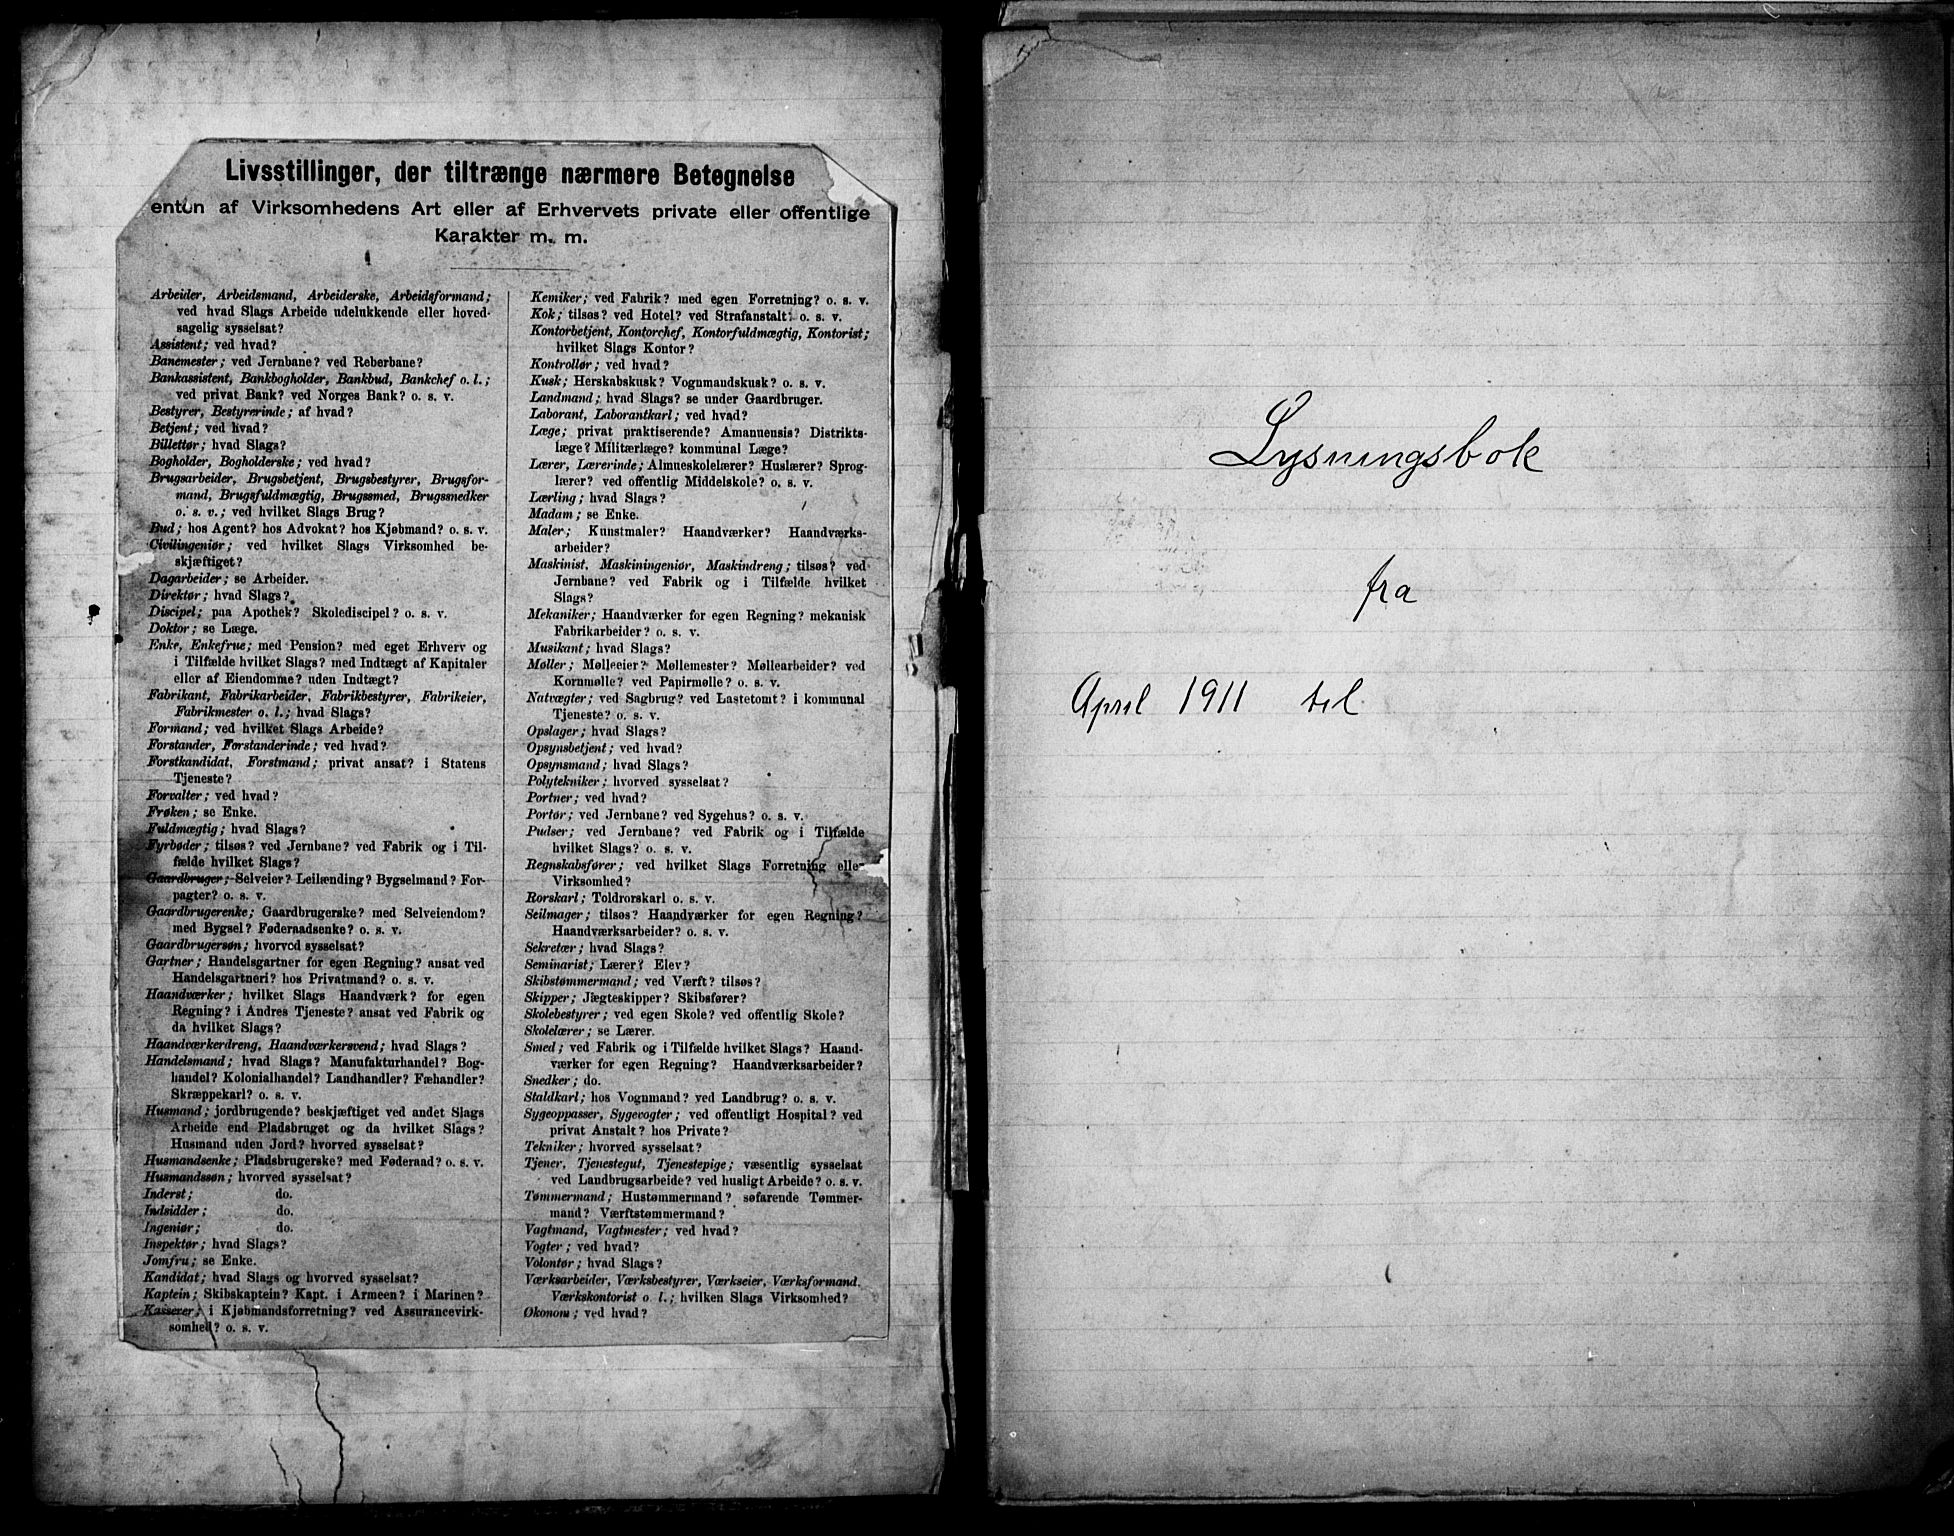 Livsstillinger, der tiltrænge nærmere Betegnelse
enten af Virksomhedens Art eller af Erhvervets private eller offentlige
Karakter m. m.
Arbeider, Arbeidsmand, Arbeiderske, Arbeidsformand;
ved hvad Slags Arbeide udelukkende eller hoved-
sagelig sysselsat?
Assistent; ved hvad?
Banemester; ved Jernbane? ved Reberbane?
Bankassistent, Bankbogholder, Bankbud, Bankchef o. l.;
ved privat Bank? ved Norges Bank? o. s. v.
Bestyrer, Bestyrerinde; af hvad?
Betjent; ved hvad?
Billettør; hvad Slags?
Bogholder, Bogholderske; ved hvad?
Brugsarbeider, Brugsbetjent, Brugsbestyrer, Brugsfor-
mand, Brugsfuldmægtig, Brugssmed, Brugssnedker
o. s. v.; ved hvilket Slags Brug?
Bud; hos Agent? hos Advokat? hos Kjøbmand? o. s. v.
Civilingeniør; ved hvilket Slags Virksomhed be-
skjæftiget?
Dagarbeider; se Arbeider.
Direktør; hvad Slags?
Discipel; paa Apothek? Skolediscipel? o. s. v.
Doktor; se Læge.
Enke, Enkefrue; med Pension? med eget Erhverv og
i Tilfælde hvilket Slags? med Indtægt af Kapitaler
eller af Eiendomme? uden Indtægt?
Fabrikant, Fabrikarbeider, Fabrikbestyrer, Fabrikeier,
Fabrikmester o. l.; hvad Slags?
Formand; ved hvilket Slags Arbeide?
Forstander, Forstanderinde; ved hvad?
Forstkandidat, Forstmand; privat ansat? i Statens
Tjeneste?
Forvalter; ved hvad?
Frøken; se Enke.
Fuldmægtig; hvad Slags?
Fyrbøder; tilsøs? ved Jernbane? ved Fabrik og i Til-
fælde hvilket Slags?
Gaardbruger; Selveier? Leilænding? Bygselmand? For-
pagter? o. s. v.
Gaardbrugerenke; Gaardbrugerske? med Selveiendom?
med Bygsel? Føderaadsenke? o. s. v.
Gaardbrugersøn; hvorved sysselsat?
Gartner; Handelsgartner for egen Regning? ansat ved
Handelsgartneri? hos Privatmand? o. s. v.
Haandværker; hvilket Slags Haandværk? for egen
Regning? i Andres Tjeneste? ansat ved Fabrik og
da hvilket Slags?
Haandværkerdreng, Haandværkersvend; hvad Slags?
Handelsmand; hvad Slags? Manufakturhandel? Bog-
handel? Kolonialhandel? Landhandler? Fæhandler?
Skræppekarl? o. s. v.
Husmand; jordbrugende? beskjæftiget ved andet Slags
Arbeide end Pladsbruget og da hvilket Slags?
Husmand uden Jord? hvorved sysselsat?
Husmandsenke; Pladsbrugerske? med Føderaad? o. s. v.
Husmandssøn; hvorved sysselsat?
Inderst; do.
Indsidder; do.
Ingeniør; do.
Inspektør; hvad Slags?
Jomfru; se Enke.
Kandidat; hvad Slags og hvorved sysselsat?
Kaptein; Skibskaptein? Kapt. i Armeen? i Marinen?
Kasserer; i Kjøbmandsforretning? ved Assurancevirk-
somhed? o. s. v.
Kemiker; ved Fabrik? med egen Forretning? o. s. v.
Kok; tilsøs? ved Hotel? ved Strafanstalt? o. s. v.
Kontorbetjent, Kontorchef, Kontorfuldmægtig, Kontorist;
hvilket Slags Kontor?
Kontrollør; ved hvad?
Kusk; Herskabskusk? Vognmandskusk? o. s. v.
Landmand; hvad Slags? se under Gaardbruger.
Laborant, Laborantkarl; ved hvad?
Læge; privat praktiserende? Amanuensis? Distrikts-
læge? Militærlæge? kommunal Læge?
Lærer, Lærerinde; Almueskolelærer? Huslærer? Sprog-
lærer? ved offentlig Middelskole? o. s. v.
Lærling; hvad Slags?
Madam; se Enke.
Maler; Kunstmaler? Haandværker? Haandværks-
arbeider?
Maskinist, Maskiningeniør, Maskindreng; tilsøs? ved
Jernbane? ved Fabrik og i Tilfælde hvilket
Slags?
Mekaniker; Haandværker for egen Regning? mekanisk
Fabrikarbeider? o. s. v.
Musikant; hvad Slags?
Møller; Mølleeier? Møllemester? Møllearbeider? ved
Kornmølle? ved Papirmølle? o. s. v.
Natvægter; ved Sagbrug? ved Lastetomt? i kommunal
Tjeneste? o. s. v.
Opslager; hvad Slags?
Opsynsbetjent; ved hvad?
Opsynsmand; hvad Slags?
Polytekniker; hvorved sysselsat?
Portner; ved hvad?
Portør; ved Jernbane? ved Sygehus? o. s. v.
Pudser; ved Jernbane? ved Fabrik og i Tilfælde
hvilket Slags? o. s. v.
Regnskabsfører; ved hvilket Slags Forretning eller
Virksomhed?
Rorskarl; Toldrorskarl o. s. v.
Seilmager; tilsøs? Haandværker for egen Regning?
Haandværksarbeider? o. s. v.
Sekretær; hvad Slags?
Seminarist; Lærer? Elev?
Skibstømmermand; ved Værft? tilsøs?
Skipper; Jægteskipper? Skibsfører?
Skolebestyrer; ved egen Skole? ved offentlig Skole?
Skolelærer; se Lærer.
Smed; ved Fabrik og i Tilfælde hvilket Slags? Haand-
værker for egen Regning? Haandværksarbeider?
Snedker; do.
Staldkarl; hos Vognmand? ved Landbrug? o. s. v.
Sygeoppasser, Sygevogter; ved offentligt Hospital? ved
privat Anstalt? hos Private?
Tekniker; hvorved sysselsat?
Tjener, Tjenestegut, Tjenestepige; væsentlig sysselsat
ved Landbrugsarbeide? ved husligt Arbeide? o. s. v.
Tømmermand; Hustømmermand? søfarende Tømmer-
mand? Værftstømmermand?
Vagtmand, Vagtmester; ved hvad?
Vogter; ved hvad?
Volontør; hvad Slags?
Værksarbeider, Værksbestyrer, Værkseier, Værksformand.
Værkskontorist o. l.; hvilken Slags Virksomhed?
Økonom; ved hvad?
Lysningsbok
fra
April 1911 til